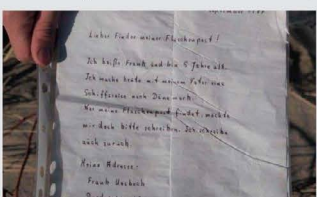 Lieber Finder meiner Flaschenpost!
Ich heiße Frank und bin 5 Jahre alt.
Ich mache heute mit meinem Vater eine
Schiffsreise nach Dänemark.
Wer meine Flaschenpost findet, möchte
mir doch bitte schreiben. Ich schreibe
auch zurück.
Meine Adresse:
Frank